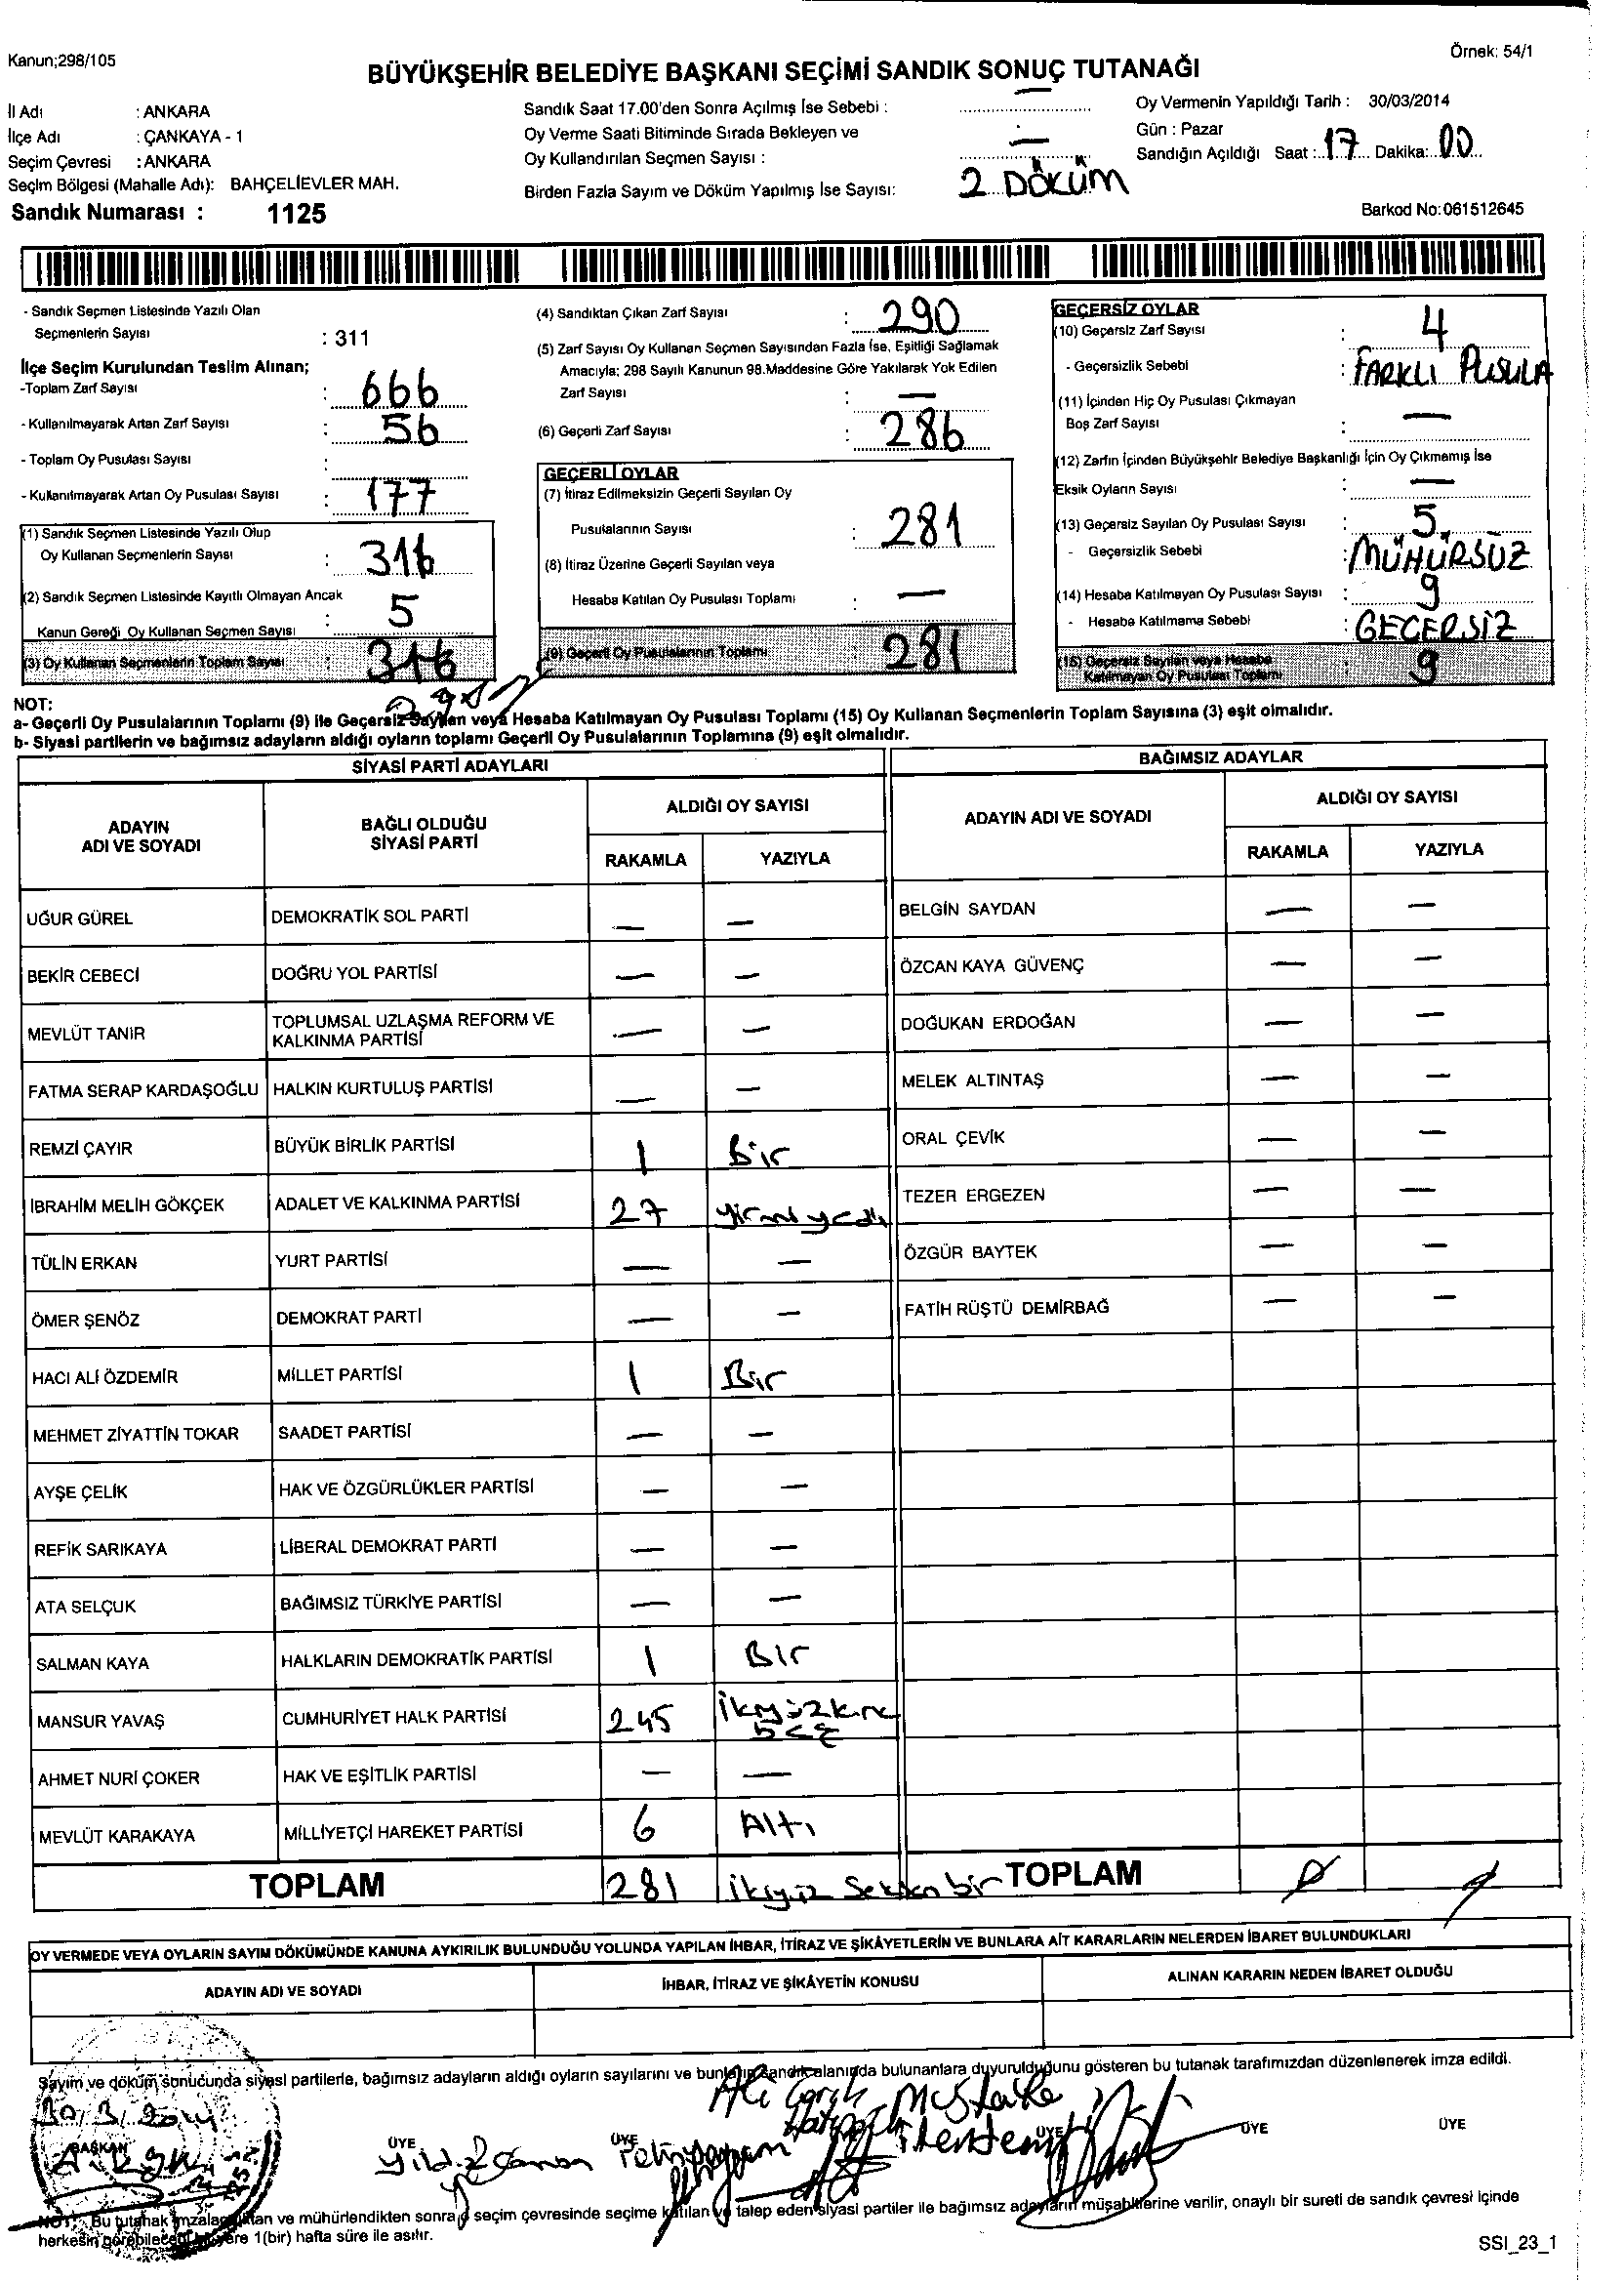 Kanun;298/105
Örnek: 54/1
BÜYÜKŞEHİR BELEDİYE BAŞKANI SEÇİMİ SANDIK SONUÇ TUTANAĞI
İl Adı : ANKARA
İlçe Adı : ÇANKAYA - 1
Seçim Çevresi : ANKARA
Seçim Bölgesi (Mahalle Adı): BAHÇELİEVLER MAH.
Sandık Numarası : 1125
Sandık Saat 17.00'den Sonra Açılmış İse Sebebi : —
Oy Verme Saati Bitiminde Sırada Bekleyen ve
Oy Kullandırılan Seçmen Sayısı : —
Birden Fazla Sayım ve Döküm Yapılmış İse Sayısı: 2 DÖKÜM
Oy Vermenin Yapıldığı Tarih : 30/03/2014
Gün : Pazar
Sandığın Açıldığı Saat : 17 Dakika: 00
Barkod No:061512645
- Sandık Seçmen Listesinde Yazılı Olan
Seçmenlerin Sayısı : 311
İlçe Seçim Kurulundan Teslim Alınan;
-Toplam Zarf Sayısı : 666
- Kullanılmayarak Artan Zarf Sayısı : 56
- Toplam Oy Pusulası Sayısı :
- Kullanılmayarak Artan Oy Pusulası Sayısı : 177
(1) Sandık Seçmen Listesinde Yazılı Olup
Oy Kullanan Seçmenlerin Sayısı : 316
(2) Sandık Seçmen Listesinde Kayıtlı Olmayan Ancak
Kanun Gereği Oy Kullanan Seçmen Sayısı : 5
(3) Oy Kullanan Seçmenlerin Toplam Sayısı : 316
290
(4) Sandıktan Çıkan Zarf Sayısı : 290
(5) Zarf Sayısı Oy Kullanan Seçmen Sayısından Fazla İse, Eşitliği Sağlamak
Amacıyla; 298 Sayılı Kanunun 98.Maddesine Göre Yakılarak Yok Edilen
Zarf Sayısı : —
(6) Geçerli Zarf Sayısı : 286
GEÇERLİ OYLAR
(7) İtiraz Edilmeksizin Geçerli Sayılan Oy
Pusulalarının Sayısı : 281
(8) İtiraz Üzerine Geçerli Sayılan veya
Hesaba Katılan Oy Pusulası Toplamı : —
(9) Geçerli Oy Pusulalarının Toplamı 281
GEÇERSİZ OYLAR
(10) Geçersiz Zarf Sayısı : 4
- Geçersizlik Sebebi : FARKLI PUSULA
(11) İçinden Hiç Oy Pusulası Çıkmayan
Boş Zarf Sayısı : —
(12) Zarfın İçinden Büyükşehir Belediye Başkanlığı İçin Oy Çıkmamış İse
Eksik Oyların Sayısı : —
(13) Geçersiz Sayılan Oy Pusulası Sayısı : 5
- Geçersizlik Sebebi : MÜHÜRSÜZ
(14) Hesaba Katılmayan Oy Pusulası Sayısı : 9
- Hesaba Katılmama Sebebi : GEÇERSİZ
(15) Geçersiz Sayılan veya Hesaba
Katılmayan Oy Pusulası Toplamı : 9
NOT:
a- Geçerli Oy Pusulalarının Toplamı (9) ile Geçersiz Sayılan veya Hesaba Katılmayan Oy Pusulası Toplamı (15) Oy Kullanan Seçmenlerin Toplam Sayısına (3) eşit olmalıdır.
b- Siyasi partilerin ve bağımsız adayların aldığı oyların toplamı Geçerli Oy Pusulalarının Toplamına (9) eşit olmalıdır.
SİYASİ PARTİ ADAYLARI
ADAYIN ADI VE SOYADI BAĞLI OLDUĞU SİYASİ PARTİ ALDIĞI OY SAYISI
RAKAMLA YAZIYLA
UĞUR GÜREL DEMOKRATİK SOL PARTİ — —
BEKİR CEBECİ DOĞRU YOL PARTİSİ — —
MEVLÜT TANIR TOPLUMSAL UZLAŞMA REFORM VE KALKINMA PARTİSİ — —
FATMA SERAP KARDAŞOĞLU HALKIN KURTULUŞ PARTİSİ — —
REMZİ ÇAYIR BÜYÜK BİRLİK PARTİSİ 1 Bir
İBRAHİM MELİH GÖKÇEK ADALET VE KALKINMA PARTİSİ 27 yirmi yedi
TÜLİN ERKAN YURT PARTİSİ — —
ÖMER ŞENÖZ DEMOKRAT PARTİ — —
HACI ALİ ÖZDEMİR MİLLET PARTİSİ 1 Bir
MEHMET ZİYATTİN TOKAR SAADET PARTİSİ — —
AYŞE ÇELİK HAK VE ÖZGÜRLÜKLER PARTİSİ — —
REFİK SARIKAYA LİBERAL DEMOKRAT PARTİ — —
ATA SELÇUK BAĞIMSIZ TÜRKİYE PARTİSİ — —
SALMAN KAYA HALKLARIN DEMOKRATİK PARTİSİ 1 Bir
MANSUR YAVAŞ CUMHURİYET HALK PARTİSİ 245 ikiyüzkırk beş
AHMET NURİ ÇOKER HAK VE EŞİTLİK PARTİSİ — —
MEVLÜT KARAKAYA MİLLİYETÇİ HAREKET PARTİSİ 6 Altı
TOPLAM 281 ikiyüz seksen bir
BAĞIMSIZ ADAYLAR
ADAYIN ADI VE SOYADI ALDIĞI OY SAYISI
RAKAMLA YAZIYLA
BELGİN SAYDAN — —
ÖZCAN KAYA GÜVENÇ — —
DOĞUKAN ERDOĞAN — —
MELEK ALTINTAŞ — —
ORAL ÇEVİK — —
TEZER ERGEZEN — —
ÖZGÜR BAYTEK — —
FATİH RÜŞTÜ DEMİRBAĞ — —
TOPLAM
OY VERMEDE VEYA OYLARIN SAYIM DÖKÜMÜNDE KANUNA AYKIRILIK BULUNDUĞU YOLUNDA YAPILAN İHBAR, İTİRAZ VE ŞİKÂYETLERİN VE BUNLARA AİT KARARLARIN NELERDEN İBARET BULUNDUKLARI
ADAYIN ADI VE SOYADI İHBAR, İTİRAZ VE ŞİKÂYETİN KONUSU ALINAN KARARIN NEDEN İBARET OLDUĞU
Sayım ve döküm sonucunda siyasi partilerle, bağımsız adayların aldığı oyların sayılarını ve bunların sandık alanında bulunanlara duyurulduğunu gösteren bu tutanak tarafımızdan düzenlenerek imza edildi.
30/3/2014
BAŞKAN ÜYE ÜYE ÜYE ÜYE ÜYE
Ali Mustafa
NOT: Bu tutanak imzalandıktan ve mühürlendikten sonra seçim çevresinde seçime katılan ve talep eden siyasi partiler ile bağımsız adayların müşahitlerine verilir, onaylı bir sureti de sandık çevresi içinde
herkesin görebileceği bir yere 1(bir) hafta süre ile asılır.
SSI_23_1